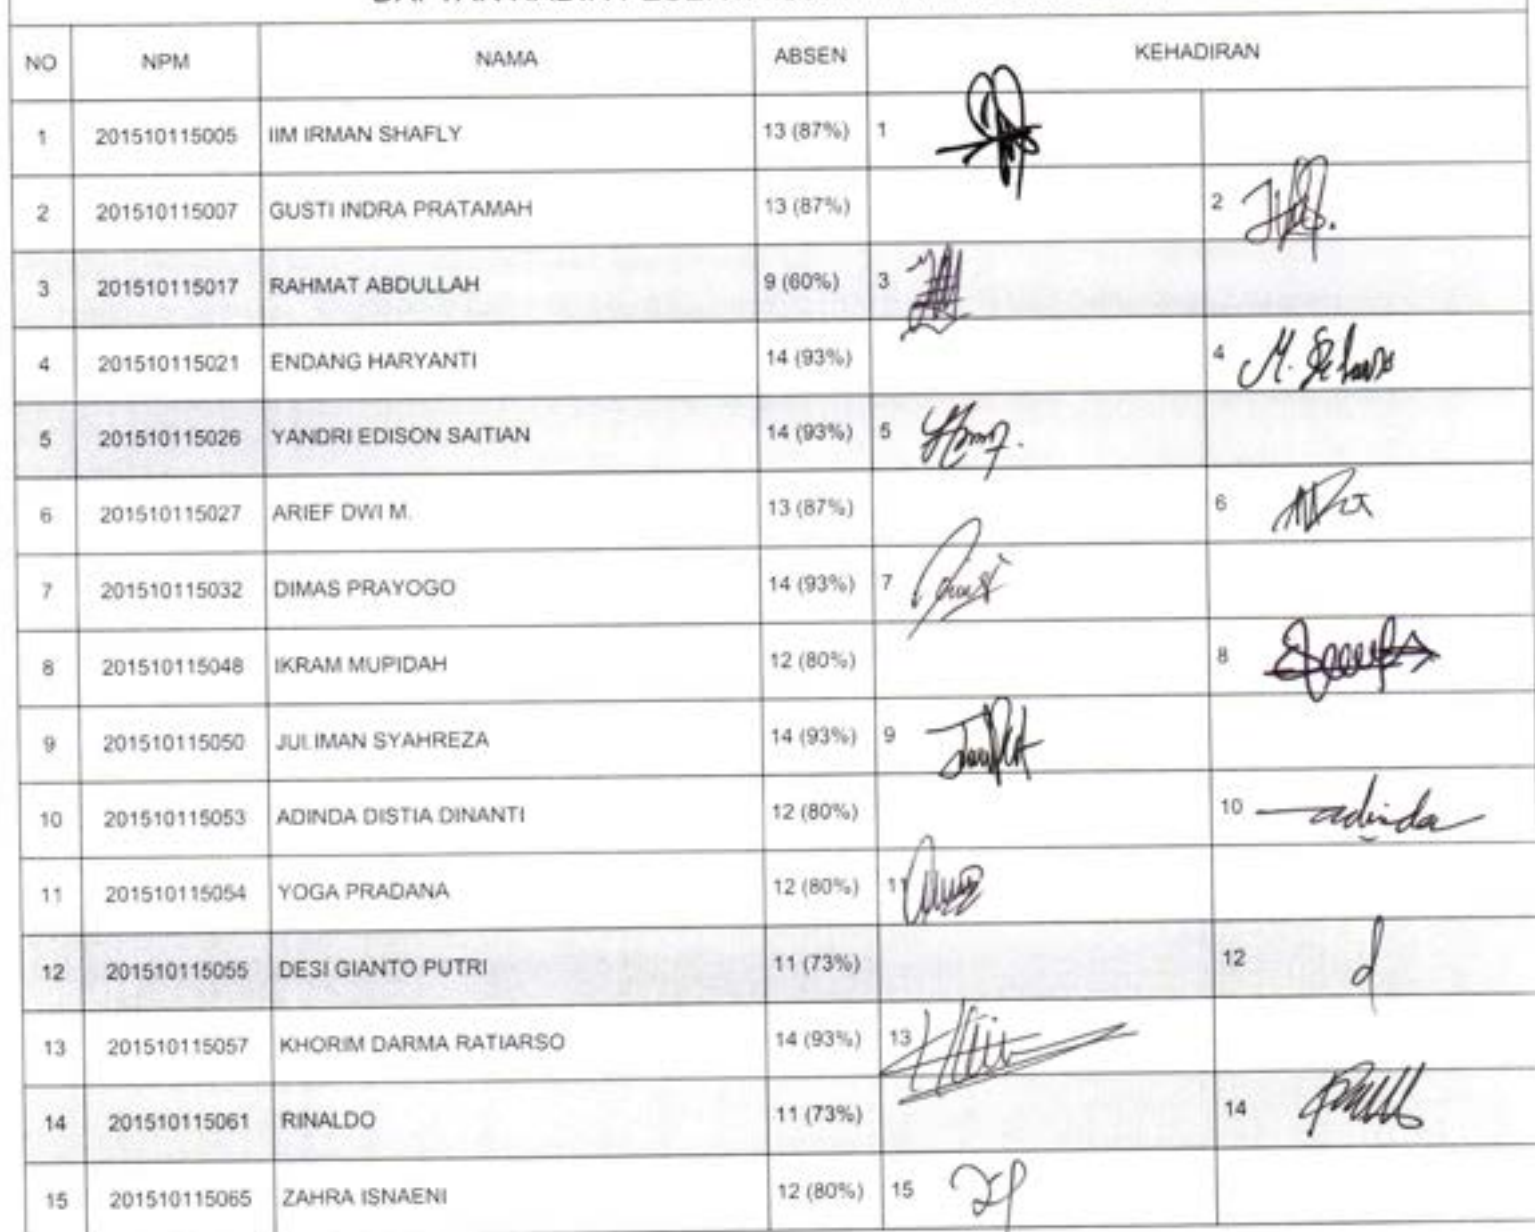 NO NPM NAMA ABSEN KEHADIRAN
1 201510115005 IIM IRMAN SHAFLY 13 (87%) 1
2 201510115007 GUSTI INDRA PRATAMAH 13 (87%) 2
3 201510115017 RAHMAT ABDULLAH 9 (60%) 3
4 201510115021 ENDANG HARYANTI 14 (93%) 4
5 201510115026 YANDRI EDISON SAITIAN 14 (93%) 5
6 201510115027 ARIEF DWI M. 13 (87%) 6
7 201510115032 DIMAS PRAYOGO 14 (93%) 7
8 201510115048 IKRAM MUPIDAH 12 (80%) 8
9 201510115050 JULIMAN SYAHREZA 14 (93%) 9
10 201510115053 ADINDA DISTIA DINANTI 12 (80%) 10 adinda
11 201510115054 YOGA PRADANA 12 (80%) 11
12 201510115055 DESI GIANTO PUTRI 11 (73%) 12 d
13 201510115057 KHORIM DARMA RATIARSO 14 (93%) 13
14 201510115061 RINALDO 11 (73%) 14
15 201510115065 ZAHRA ISNAENI 12 (80%) 15